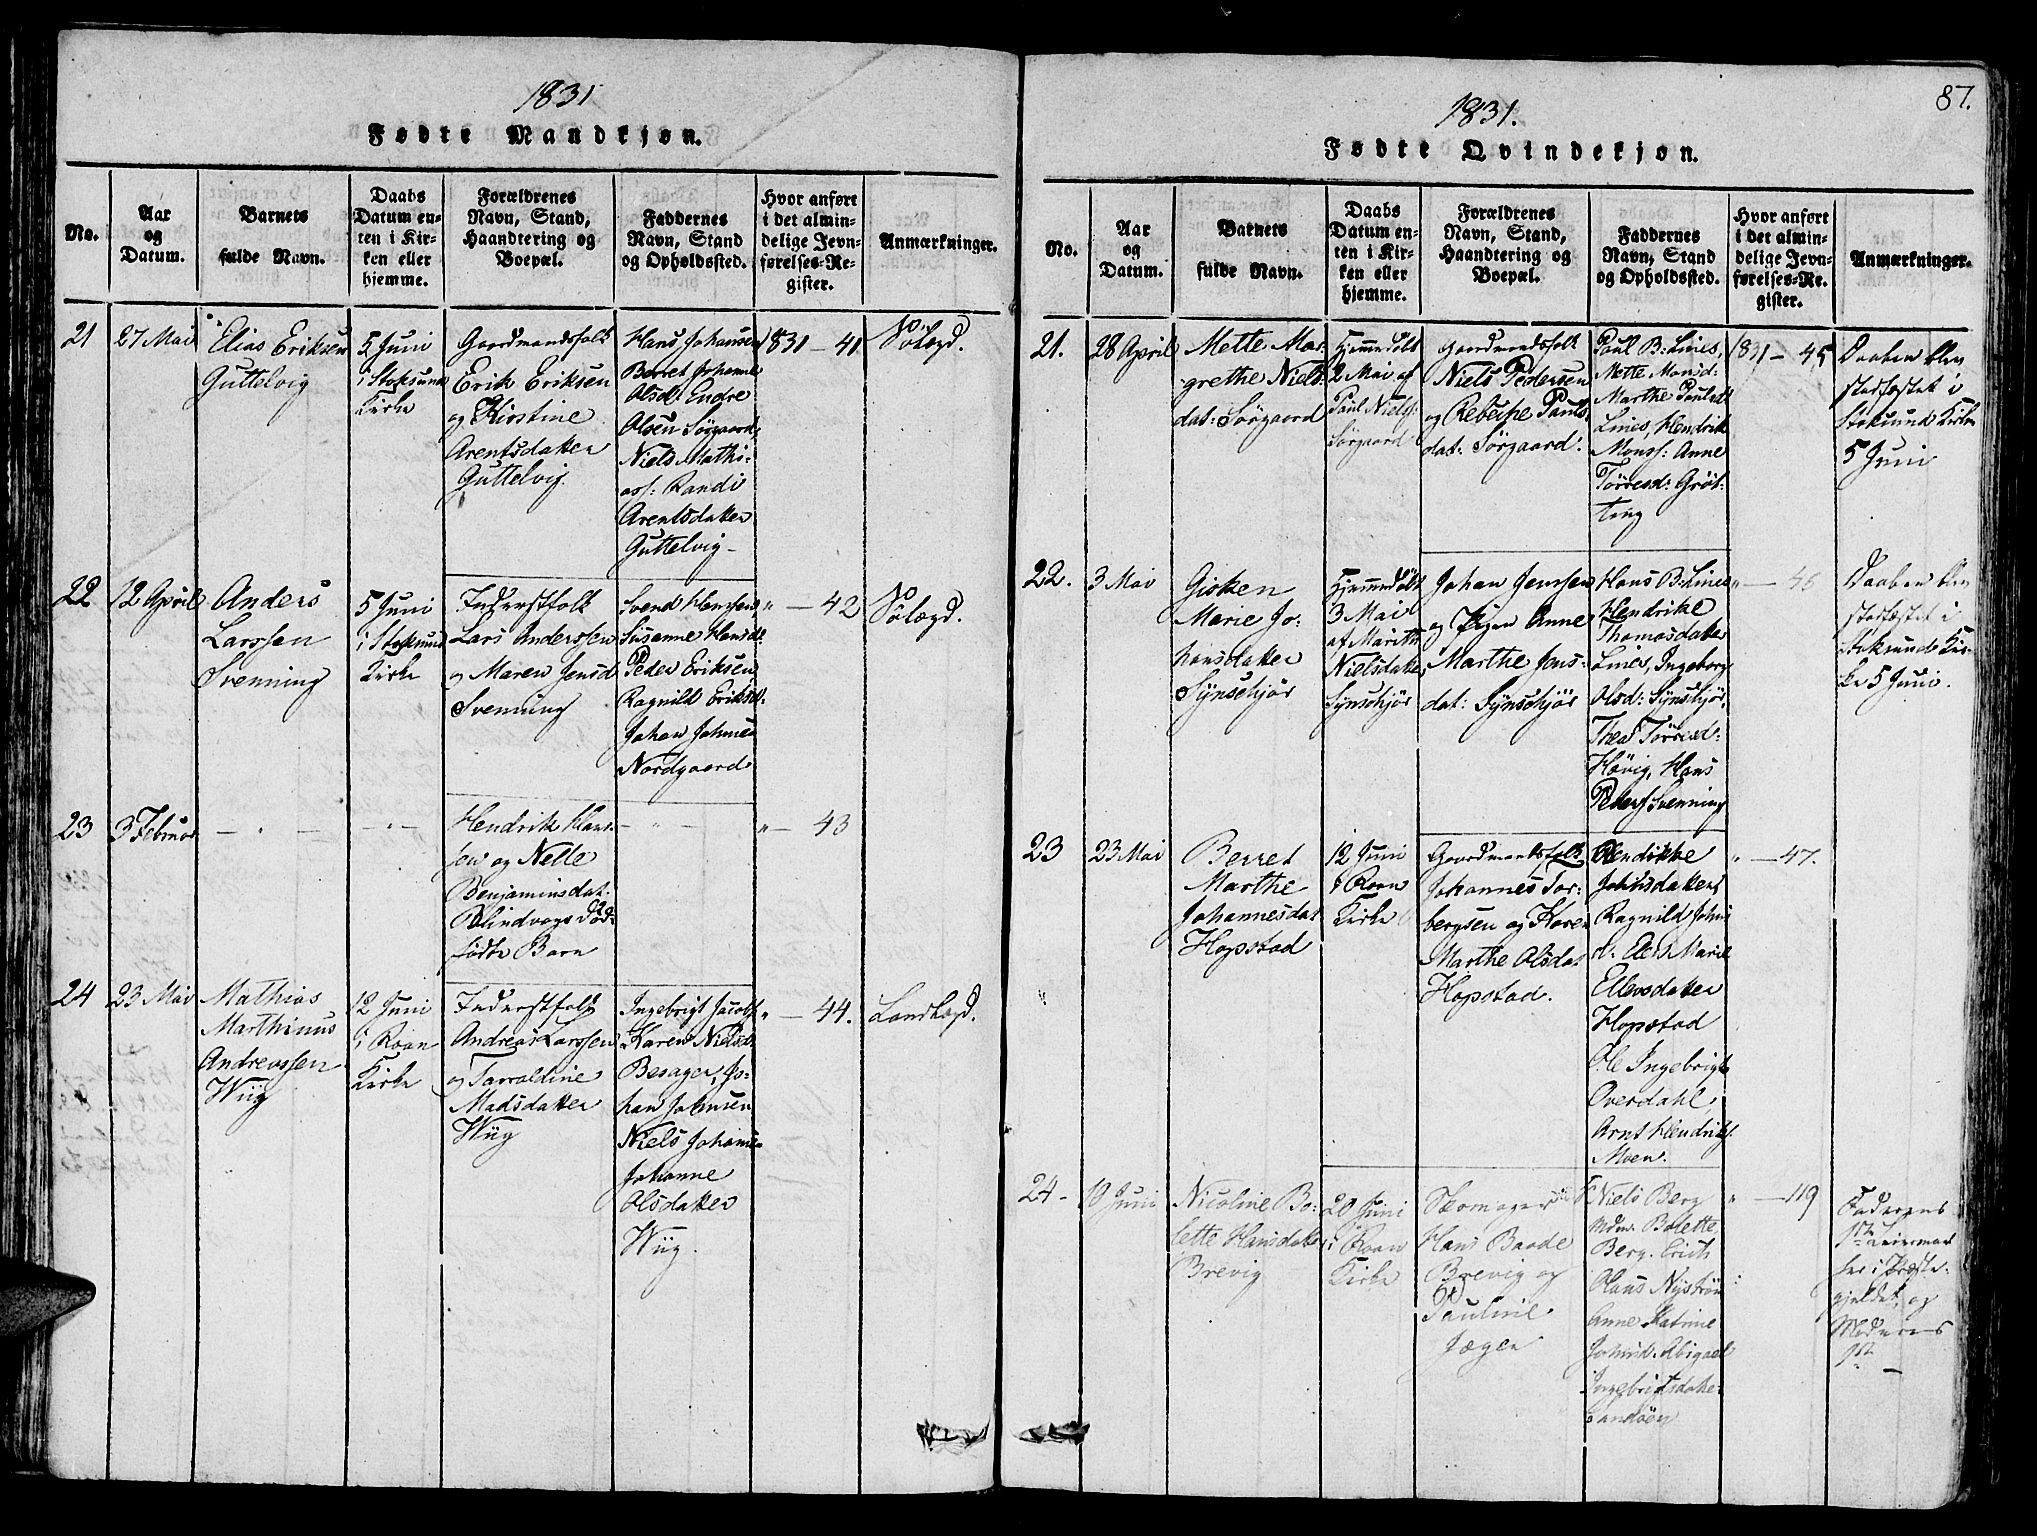 1831
Fødte Mandkjøn.
No.
Aar
og
Datum.
Barnets
fulde Navn.
Daabs
Datum en-
ten i Kir-
ken eller
hjemme.
Forældrenes
Navn, Stand,
Haandtering og
Boepæl.
Faddernes
Navn, Stand
og Opholdssted.
Hvor anført
i det almin-
delige Jevn-
førelses-Re-
gister.
Anmærkninger.
21
27 Mai
Elias Eriksen
Guttelvig
5 Juni
i Stoksund
Kirke
Gaardmandsfolk
Erik Eriksen
og Kirstine
Arentsdatter
Guttelvig
Hans Johansen
Berret Johanne
Olsd: Endre
Olsen Sørgaard,
Niels Mathi-
ass: Randi
Arentsdatter
Guttelvig
1831 - 41
Sölægd.
22
12 April
Anders
Larssen
Svenning
5 Juni
i Stoksund
Kirke
Inderstfolk
Lars Anderssen
og Maren Jensd
Svenning
Svend Hanssen
Susanne Hansd:
Peder Eriksen
Ragnild Eriksd:
Johan Johnsen
Nordgaard
" - 42
Sölægd.
23
3 Februar
- " -
- " -
Hendrik Hans-
sen og Nelle
Benjaminsdat:
Blindvogs død-
fødte Barn
- " -
" - 43
24
23 Mai
Mathias
Marthinus
Andreassen
Wiig
12 Juni
i Roan
Kirke
Inderstfolk
Andreas Larssen
og Tarraldine
Madsdatter
Wiig
Ingebrigt Jacobs:
Karen Nielsd:
Besager, Jo-
han Johnsen
Niels Johanse
Johanne
Olsdatter
Wiig.
" - 44.
Landlægd.
87.
1831.
Fødte Qvindekjøn.
No.
Aar
og
Datum.
Barnets
fulde Navn.
Daabs
Datum en-
ten i Kir-
ken eller
hjemme.
Forældrenes
Navn, Stand,
Haandtering og
Boepæl.
Faddernes
Navn, Stand
og Opholdssted.
Hvor anført
i det almin-
delige Jevn-
førelses-Re-
gister.
Anmærkninger.
21.
28 April
Mette Mar-
grethe Niels-
dat: Sørgaard
Hjemmedöbt
2 Mai af
Paul Niels:
Sørgaard
Gaardmandsfolk
Niels Pedersen
og Rebekke Pauls
dat: Sørgaard.
Paul B: Lines,
Mette Monsd:
Marthe Paulsd:
Lines, Hendrik
Monss: Anne
Törresd: Gröt-
ting
1831 - 45
Daaben blev
stadfæstet i
Stoksund Kirke
5 Juni
22.
3 Mai
Gisken
Marie Jo-
hansdatter
Synschjör
Hjemmedöbt
3 Mai
af Marith
Nielsdatter
Synschjör
Johan Jenssen
og Anne
Marthe Jens-
dat: Synschjör
Hans B: Lines
Hendrikke
Thomasdatter
Lines, Ingeborg
Olsd: Synschjör,
Thea Törresd:
Hövig, Hans
Peders Svenning
" - 46
Daaben blev
stadfæstet i
Stoksunds Kir-
ke 5 Juni.
23
23 Mai
Berret
Marthe
Johannesdat
Hopstad
12 Juni
i Roan
Kirke
Gaardmandsfolk
Johannes Tor-
bergsen og Karen
Marthe Olsdat
Hopstad.
Hendrikke
Johnsdatter,
Ragnild Johns
d: Elen Marie
Ellevsdatter
Hopstad
Ole Ingebrigts
Overdahl,
Arnt Hendriks:
Moen.
" - 47.
24 -
10 Juni
Nicoline Bo-
lette Hansdatter
Brevig
20 Juni
i Roan
Kirke
Skomager
Hans Baade
Brevig og
Pauline
Jæger
Niels Berg
Mdm. Bolette
Berg.
Hans Nyström
Anne Katrine
Johnsd. Abigael
Ingebrigtsdatter
Sandöen
" - 119
Faderens
1ste Leiermaal
her i Præste-
gjeldet, og
Moderens
1ste -